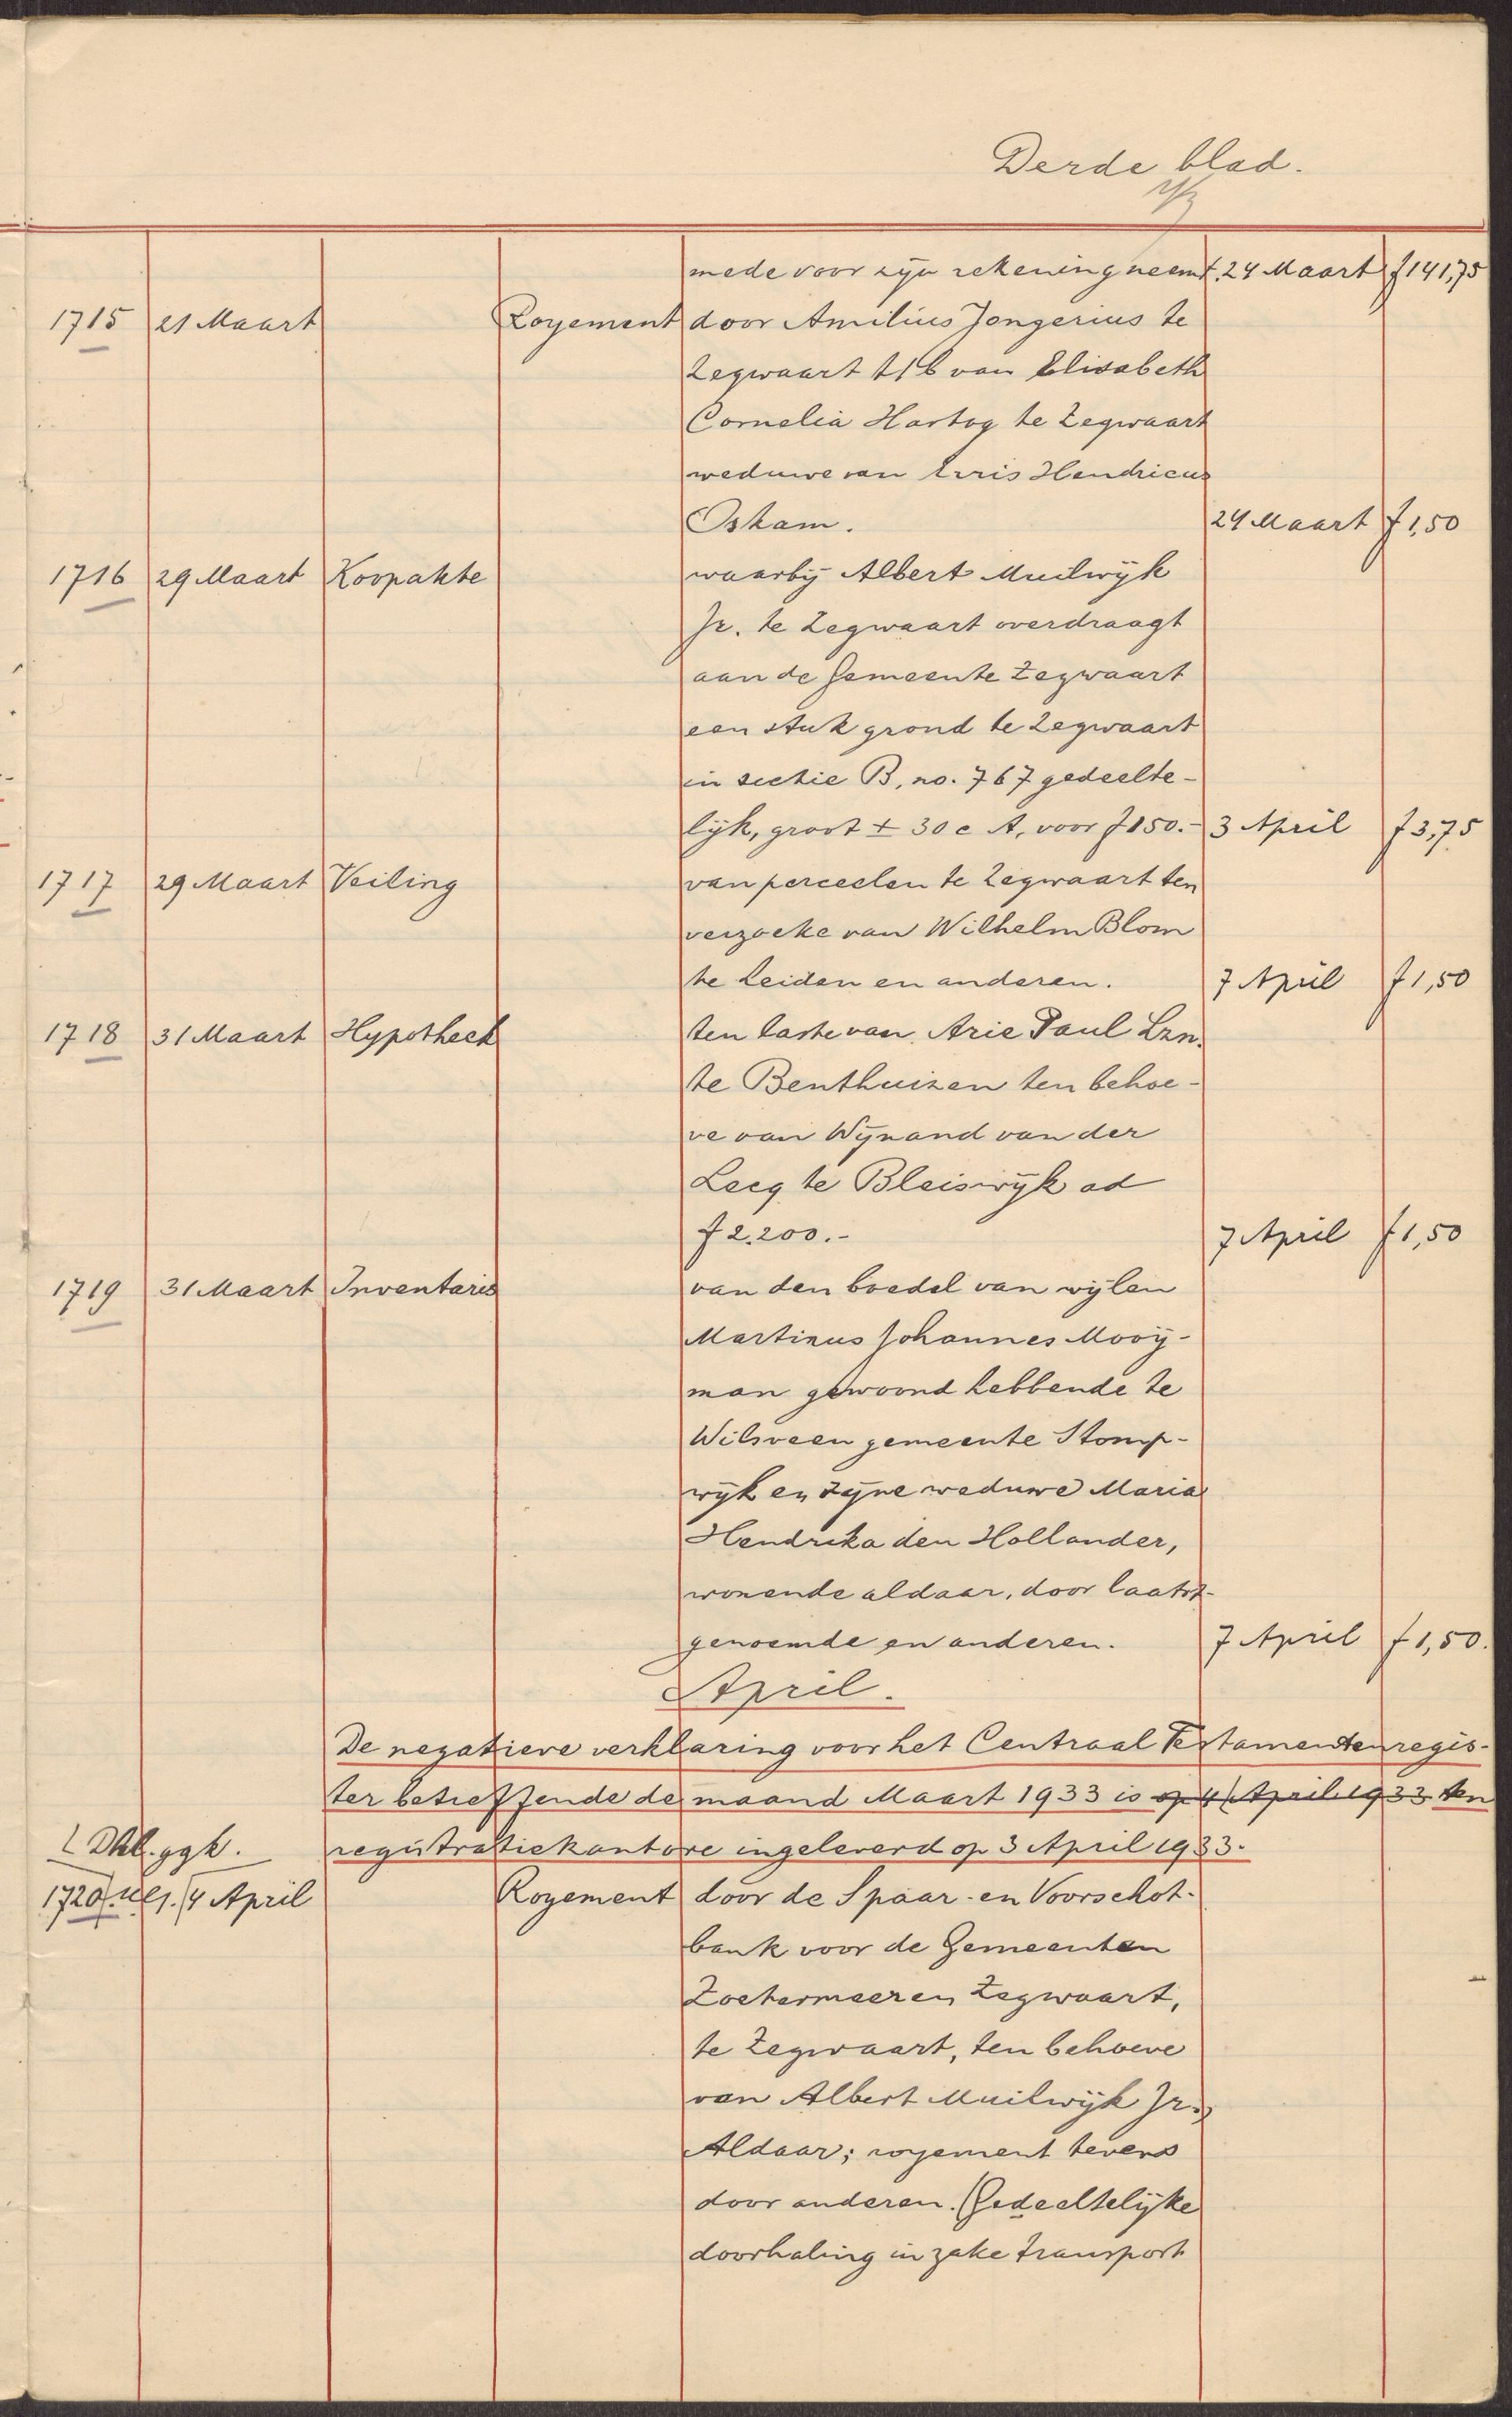 Derde blad.
mede voor zijn rekening neemt. 24 Maart f 141,75
1715 21 Maart Royement door Amilius Jongerius te
Zegwaart t/b van Elisabeth
Cornelia Hartog te Zegwaart
weduwe van Hendricus
Oskam. 24 Maart f 1,50
1716 29 Maart Koopakte waarbij Albert Muilwijk
Jr. te Zegwaart overdraagt
aan de Gemeente Zegwaart
een stuk grond te Zegwaart
in sectie B, no. 767 gedeelte-
lijk, groot ± 30 c A, voor f 150.- 3 April f 3,75
1717 29 Maart Veiling van perceelen te Zegwaart ten
verzoeke van Wilhelm Blom
te Leiden en anderen. 7 April f 1,50
1718 31 Maart Hypotheek ten laste van Arie Paul Lzn.
te Benthuizen ten behoe-
ve van Wijnand van der
Leeg te Bleiswijk ad
f 2.200.- 7 April f 1,50
1719 31 Maart Inventaris van den boedel van wijlen
Martinus Johannes Mooij-
man gewoond hebbende te
Wilsveen gemeente Stomp-
wijk en zijne weduwe Maria
Hendrika den Hollander,
wonende aldaar, door laatst-
genoemde en anderen. 7 April f 1,50.
April.
De negatieve verklaring voor het Centraal Testamentenregis-
ter betreffende de maand Maart 1933 is op 4 April 1933 ten
registratiekantore ingeleverd op 3 April 1933.
1720 4 April Royement door de Spaar- en Voorschot-
bank voor de Gemeenten
Zoetermeer en Zegwaart,
te Zegwaart, ten behoeve
van Albert Muilwijk Jr.
Aldaar; royement tevens
door anderen. (Gedeeltelijke
doorhaling in zake transport